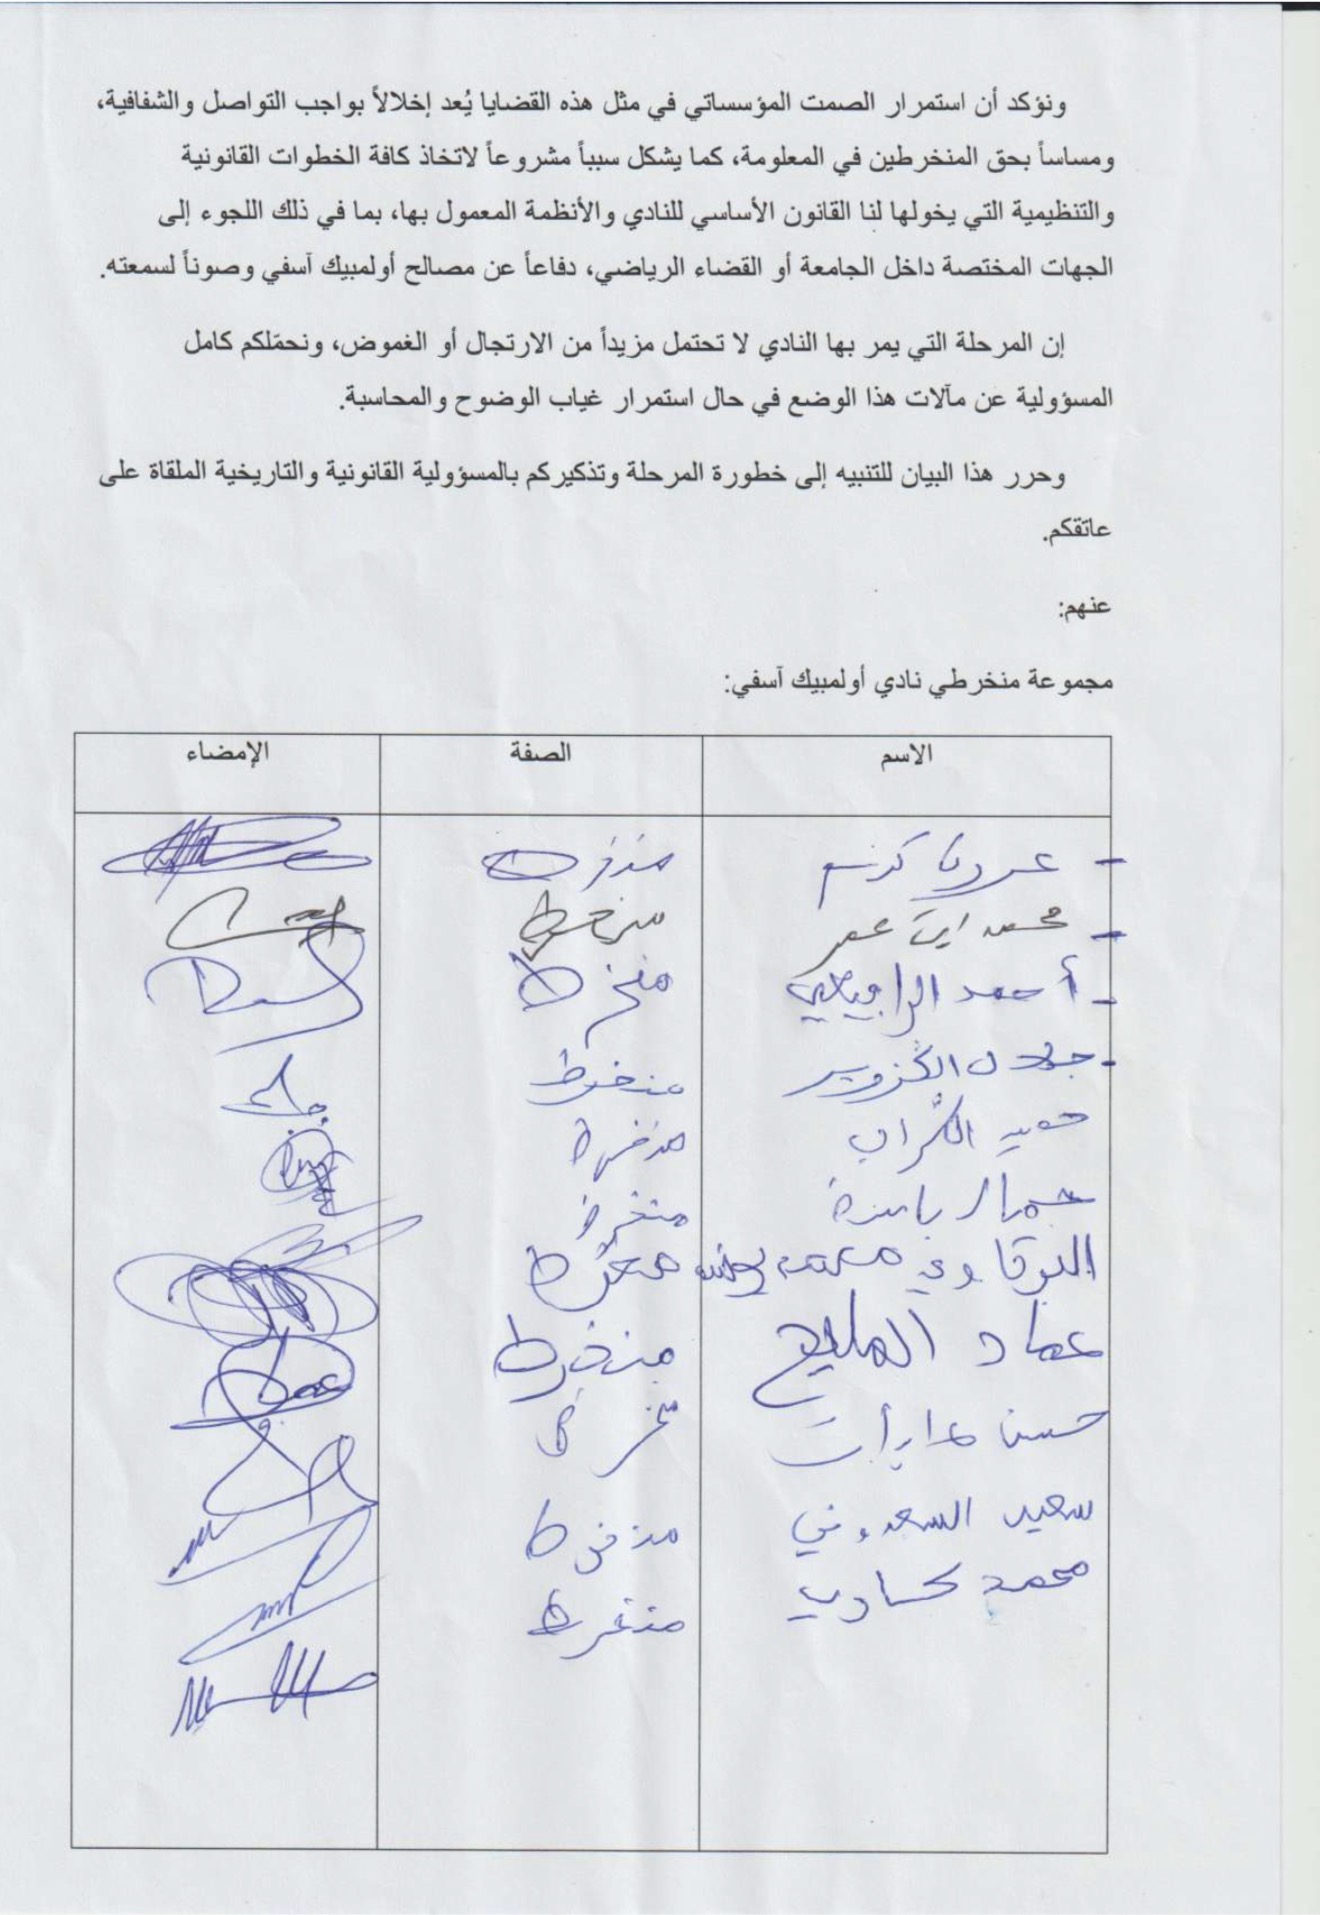 ونؤكد أن استمرار الصمت المؤسساتي في مثل هذه القضايا يُعد إخلالاً بواجب التواصل والشفافية،
ومساساً بحق المنخرطين في المعلومة، كما يشكل سبباً مشروعاً لاتخاذ كافة الخطوات القانونية
والتنظيمية التي يخولها لنا القانون الأساسي للنادي والأنظمة المعمول بها، بما في ذلك اللجوء إلى
الجهات المختصة داخل الجامعة أو القضاء الرياضي، دفاعاً عن مصالح أولمبيك آسفي وصوناً لسمعته.
إن المرحلة التي يمر بها النادي لا تحتمل مزيداً من الارتجال أو الغموض، ونحمّلكم كامل
المسؤولية عن مآلات هذا الوضع في حال استمرار غياب الوضوح والمحاسبة.
وحرر هذا البيان للتنبيه إلى خطورة المرحلة وتذكيركم بالمسؤولية القانونية والتاريخية الملقاة على
عاتقكم.
عنهم:
مجموعة منخرطي نادي أولمبيك آسفي:
الاسم الصفة الإمضاء
منخرط
محمد ايت عمر منخرط
أحمد منخرط
جلال منخرط
حميد منخرط
جمال منخرط
محمد منخرط
عماد المليح منخرط
حسن منخرط
سعيد السعدوني منخرط
محمد منخرط